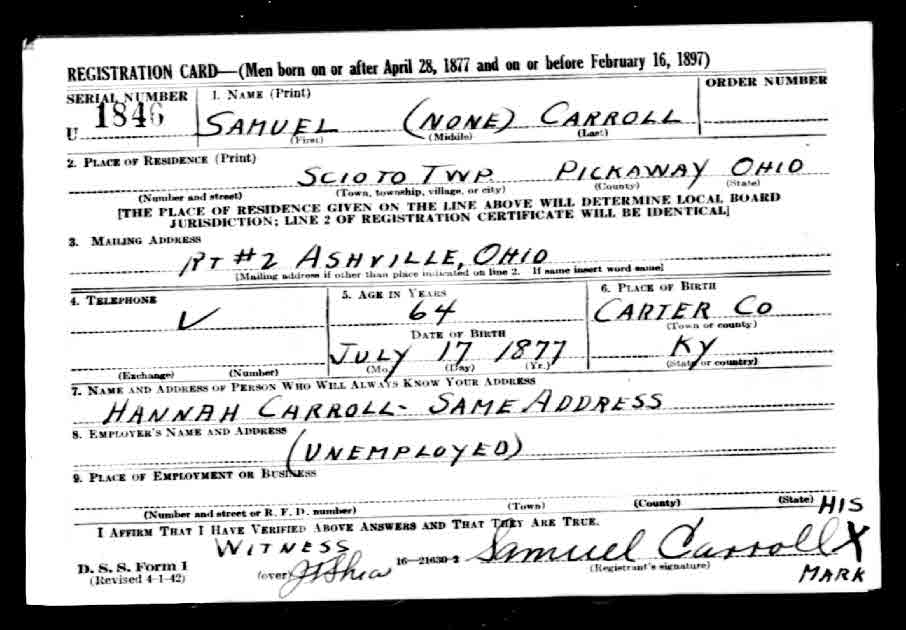 REGISTRATION CARD—(Men born on or after April 28, 1877 and on or before February 16, 1897)
SERIAL NUMBER 1. NAME (Print) ORDER NUMBER
U 1846 SAMUEL (NONE) CARROLL
(First) (Middle) (Last)
2. PLACE OF RESIDENCE (Print)
SCIOTO TWP. PICKAWAY OHIO
(Number and street) (Town, township, village, or city) (County) (State)
[THE PLACE OF RESIDENCE GIVEN ON THE LINE ABOVE WILL DETERMINE LOCAL BOARD
JURISDICTION; LINE 2 OF REGISTRATION CERTIFICATE WILL BE IDENTICAL]
3. MAILING ADDRESS
RT #2 ASHVILLE, OHIO
[Mailing address if other than place indicated on line 2. If same insert word same]
4. TELEPHONE 5. AGE IN YEARS 6. PLACE OF BIRTH
V 64 CARTER CO
DATE OF BIRTH (Town or county)
JULY 17 1877 KY
(Exchange) (Number) (Mo.) (Day) (Yr.) (State or country)
7. NAME AND ADDRESS OF PERSON WHO WILL ALWAYS KNOW YOUR ADDRESS
HANNAH CARROLL- SAME ADDRESS
8. EMPLOYER'S NAME AND ADDRESS
(UNEMPLOYED)
9. PLACE OF EMPLOYMENT OR BUSINESS
(Number and street or R. F. D. number) (Town) (County) (State)
I AFFIRM THAT I HAVE VERIFIED ABOVE ANSWERS AND THAT THEY ARE TRUE.
HIS
WITNESS
D. S. S. Form 1 16—21630-2 Samuel Carroll X
(Revised 4-1-42) (over) J Shea (Registrant's signature)
MARK